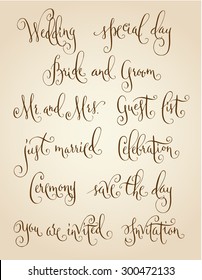 Wedding special day
Bride and Groom
Mr and Mrs Guest list
just married Celebration
Ceremony save the day
You are invited Invitation
shutterstock
IMAGE ID: 300472133
www.shutterstock.com